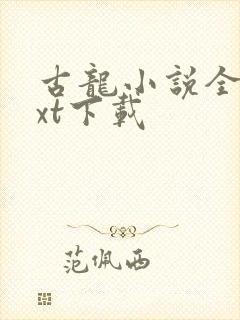 古龍小説全
xt下載
范佩西